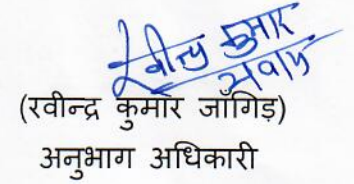 रवीन्द्र कुमार
(रवीन्द्र कुमार जाँगिड़)
अनुभाग अधिकारी